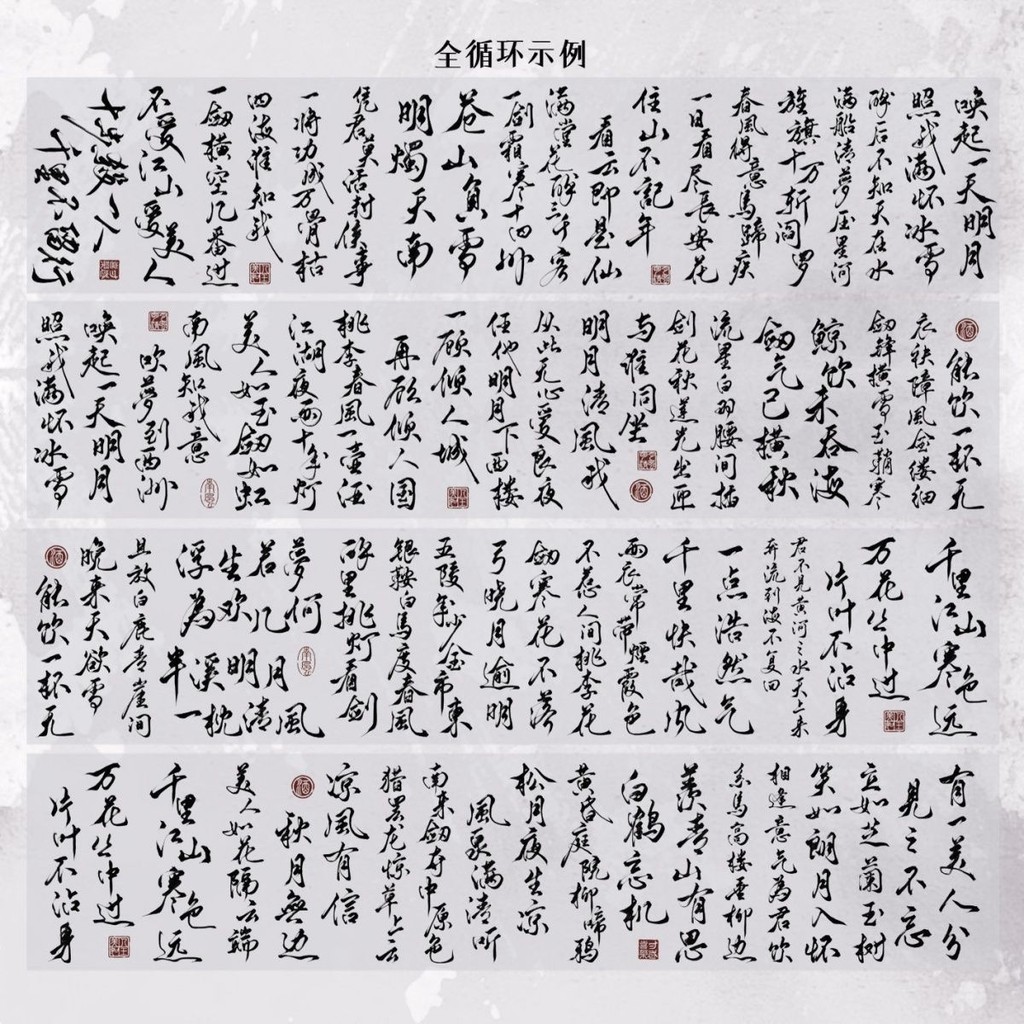 全循环示例
唤起一天明月
照我满怀冰雪
醉后不知天在水
满船清梦压星河
旌旗十万斩阎罗
春风得意馬蹄疾
一日看尽长安花
住山不記年
看云即是仙
满堂花醉三千客
一剑霜寒十四州
苍山負雪
明燭天南
凭君莫话封侯事
一将功成万骨枯
四海谁知我
一劍横空几番过
不爱江山爱美人
十步殺一人
千里不留行
能饮一杯无
衣袂障風金缕细
劍鋒横雪玉鞘寒
鲸饮未吞海
劍气已横秋
流星白羽腰间插
剑花秋莲光出匣
与谁同坐
明月清風我
从此无心爱良夜
任他明月下西楼
一顾倾人城
再顾倾人国
桃李春風一壶酒
江湖夜雨十年灯
美人如玉劍如虹
南風知我意
吹夢到西洲
唤起一天明月
照我满怀冰雪
千里江山寒色远
万花丛中过
片叶不沾身
君不見黄河之水天上来
奔流到海不复回
一点浩然气
千里快哉风
雨衣常带煙霞色
不惹人间桃李花
劍寒花不落
弓晓月逾明
五陵年少金市東
银鞍白馬度春風
醉里挑灯看剑
浮生若夢
为欢几何
半溪明月
一枕清風
且放白鹿青崖间
晚来天欲雪
能饮一杯无
有一美人兮
見之不忘
立如芝蘭玉树
笑如朗月入怀
相逢意气为君饮
系馬高楼垂柳边
羡青山有思
白鶴忘机
黄昏庭院柳啼鸦
松月夜生凉
風泉满清听
南来劍夺中原色
猎罢龙惊草上云
凉風有信
秋月無边
美人如花隔云端
千里江山寒色远
万花丛中过
片叶不沾身